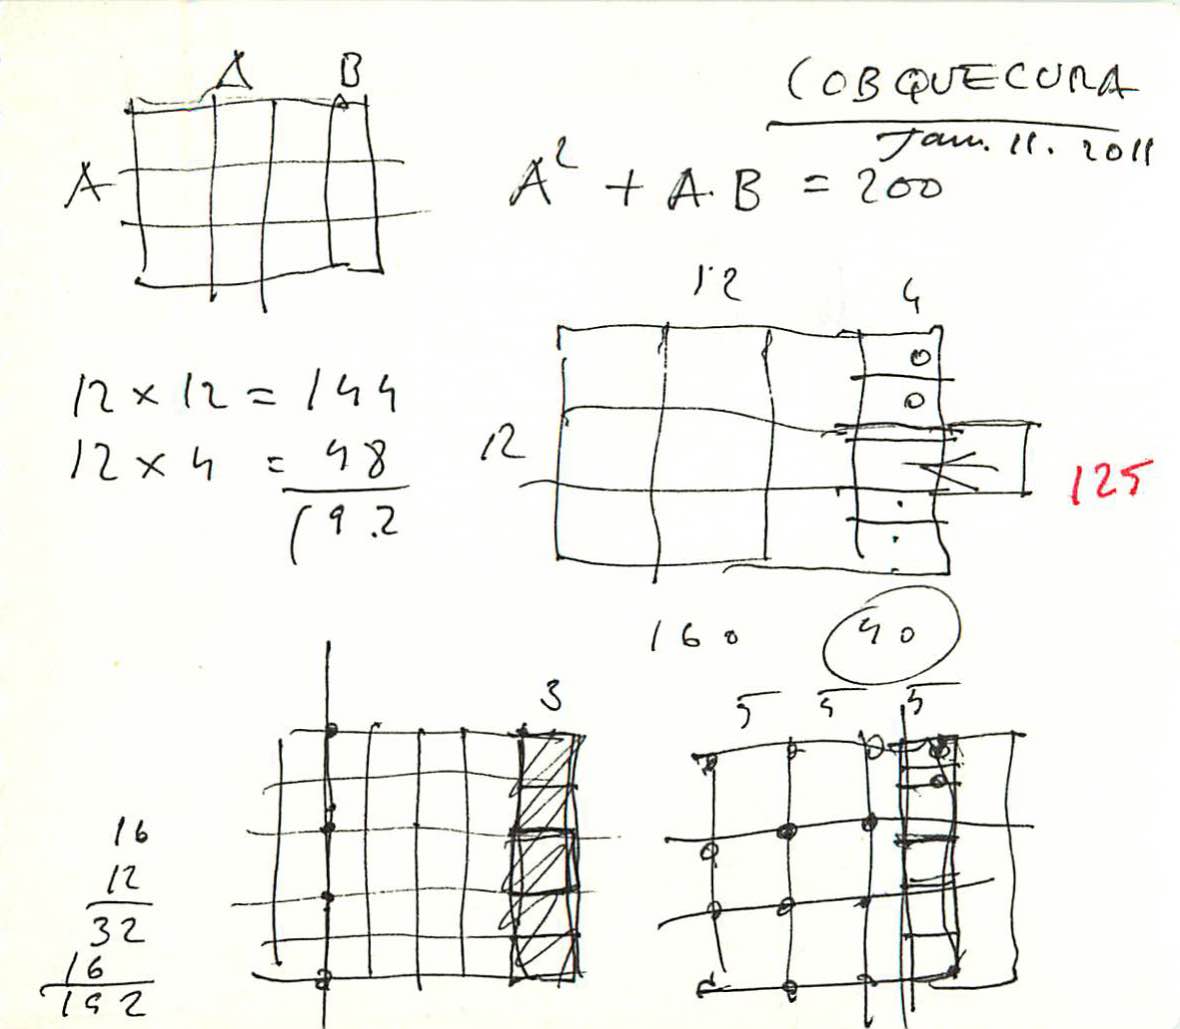 A B
COBQUECURA
Jan. 11. 2011
A
A² + A.B = 200
12 4
12 × 12 = 144
12 × 4 = 48
192
12
125
160 40
3
5 5 5
16
12
32
16
192